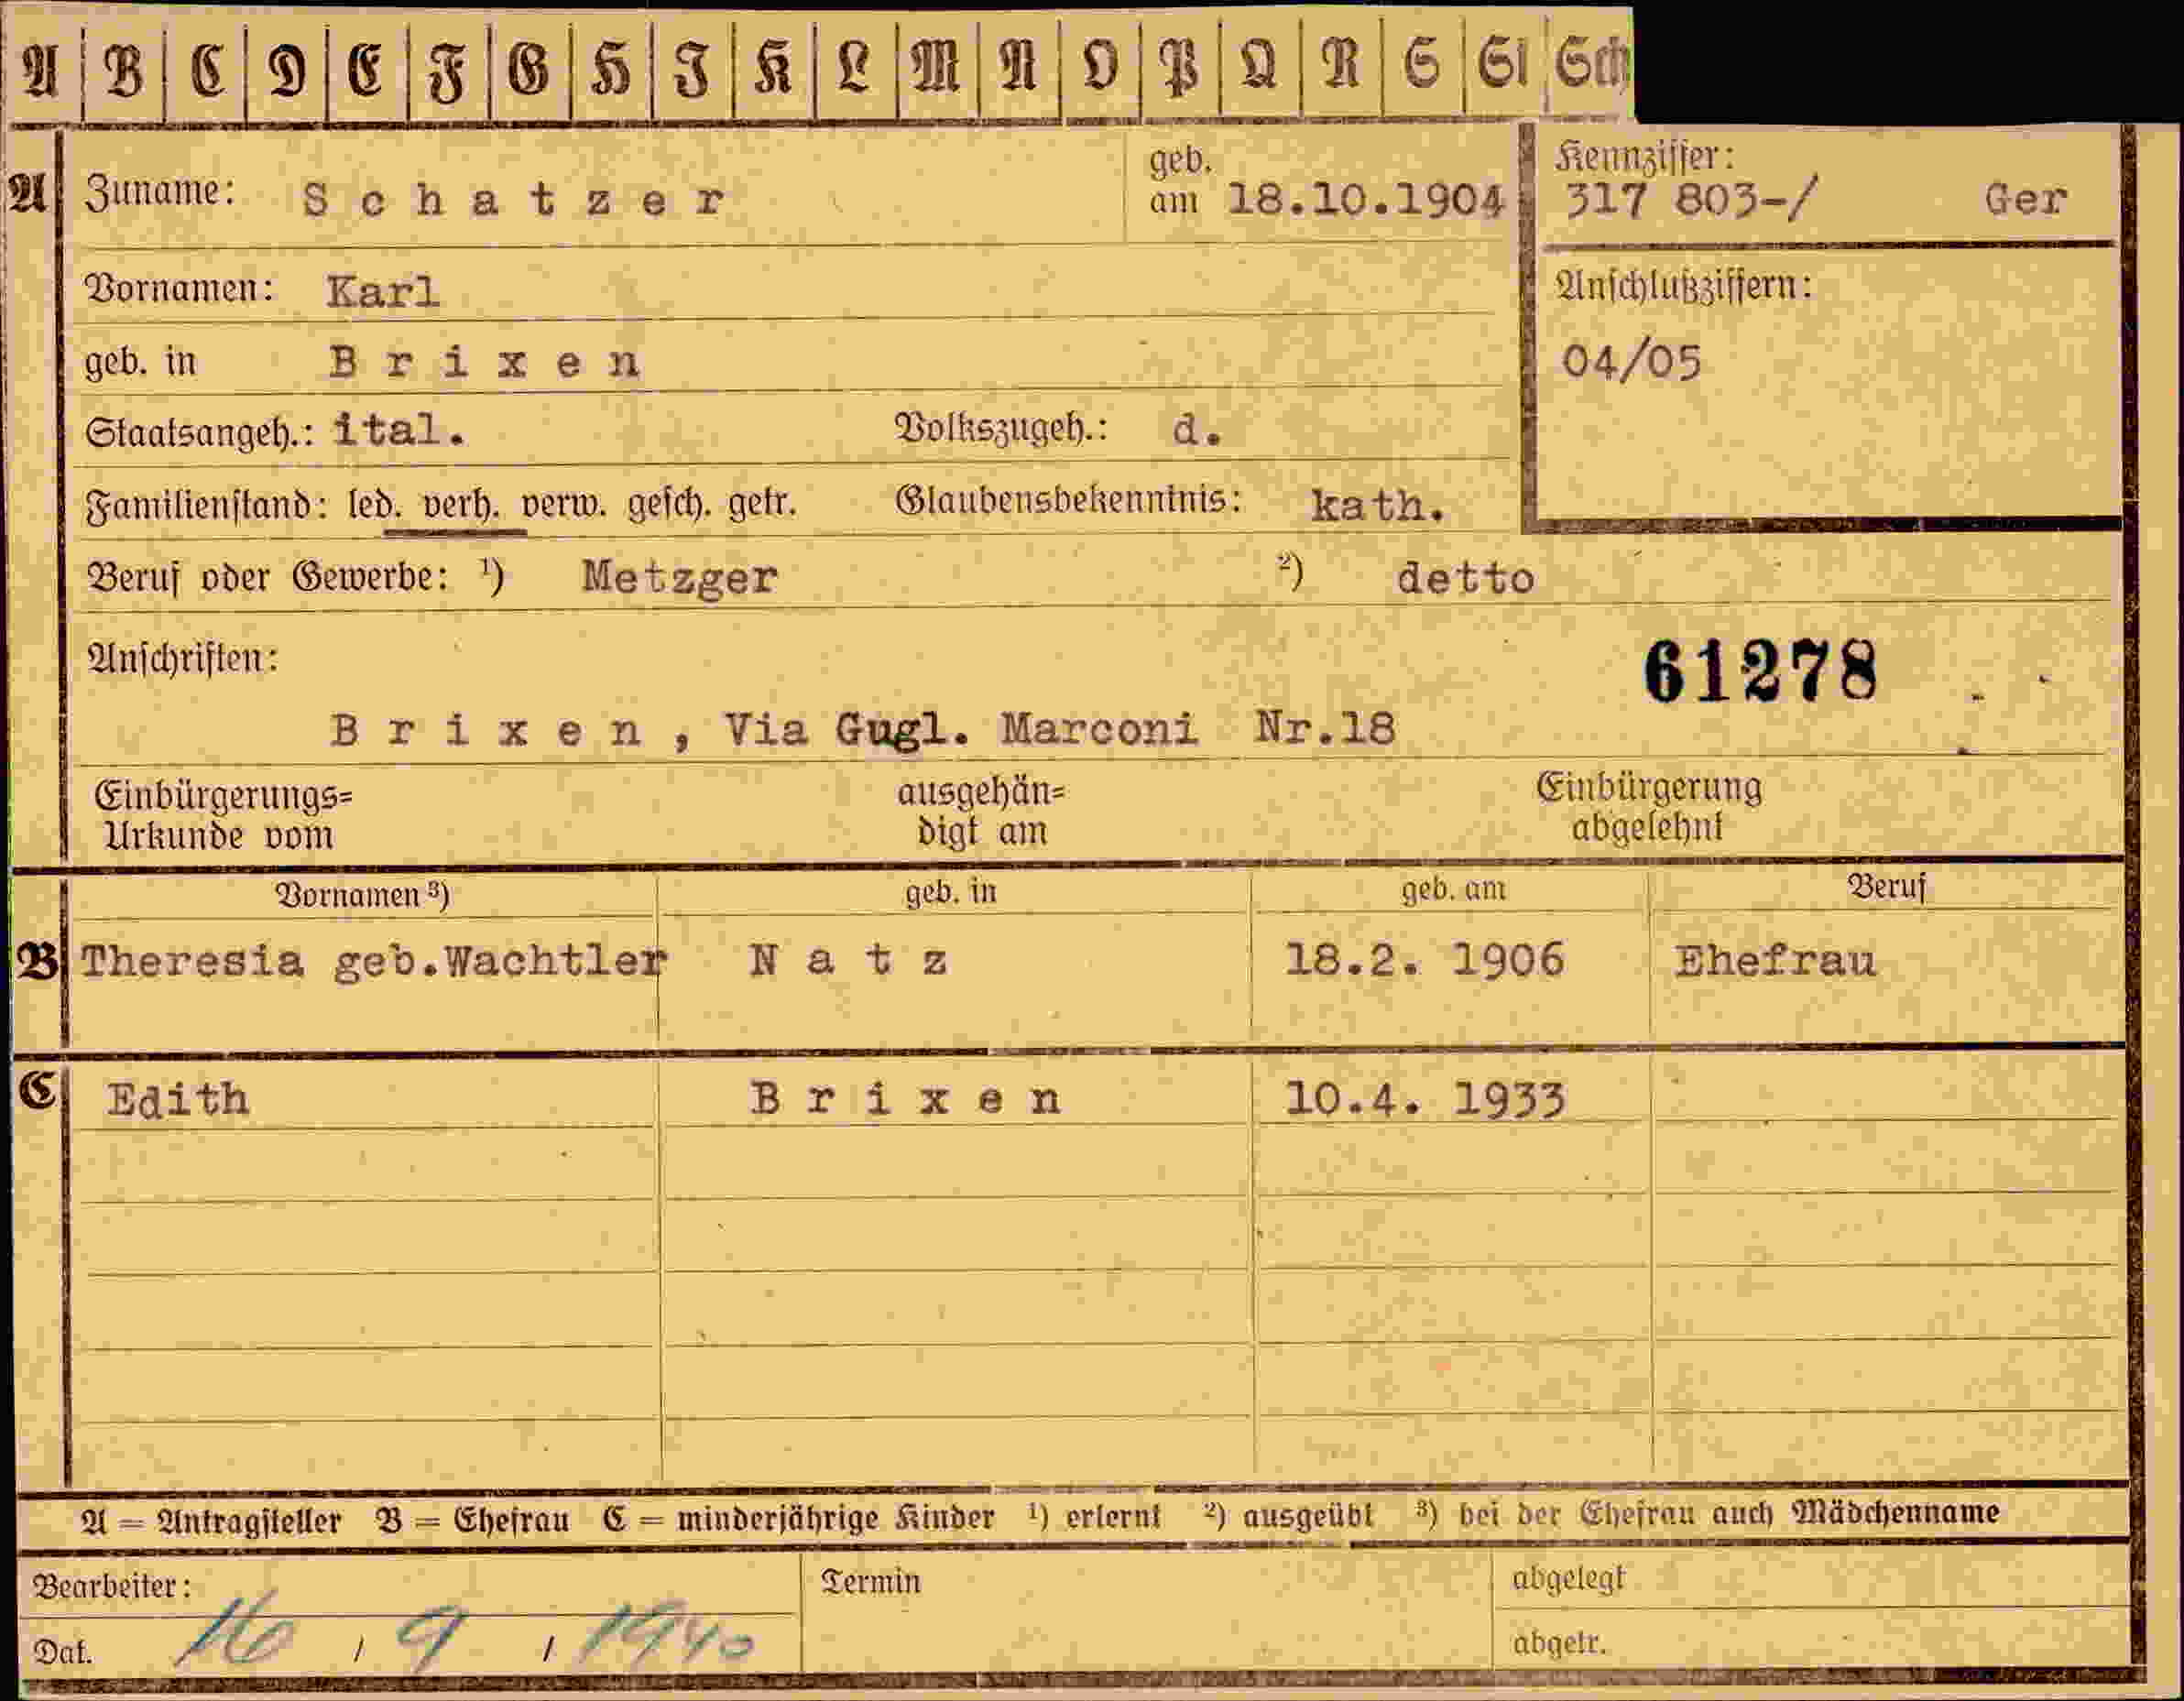 A B C D E F G H I K L M N O P Q R S St Sch
A Zuname: Schatzer geb. am 18.10.1904 Kennziffer: 317 803-/ Ger
Vornamen: Karl Anschlußziffern:
geb. in Brixen 04/05
Staatsangeh.: ital. Volkszugeh.: d.
Familienstand: led. verh. verw. gesch. getr. Glaubensbekenntnis: kath.
Beruf oder Gewerbe: ¹) Metzger ²) detto
Anschriften: 61278
Brixen, Via Gugl. Marconi Nr.18
Einbürgerungs= ausgehän= Einbürgerung
Urkunde vom digt am abgelehnt
Vornamen ³) geb. in geb. am Beruf
B Theresia geb.Wachtler Natz 18.2. 1906 Ehefrau
C Edith Brixen 10.4. 1933
A = Antragsteller B = Ehefrau C = minderjährige Kinder ¹) erlernt ²) ausgeübt ³) bei der Ehefrau auch Mädchenname
Bearbeiter: Termin abgelegt
Dat. 16 / 9 / 1940 abgetr.